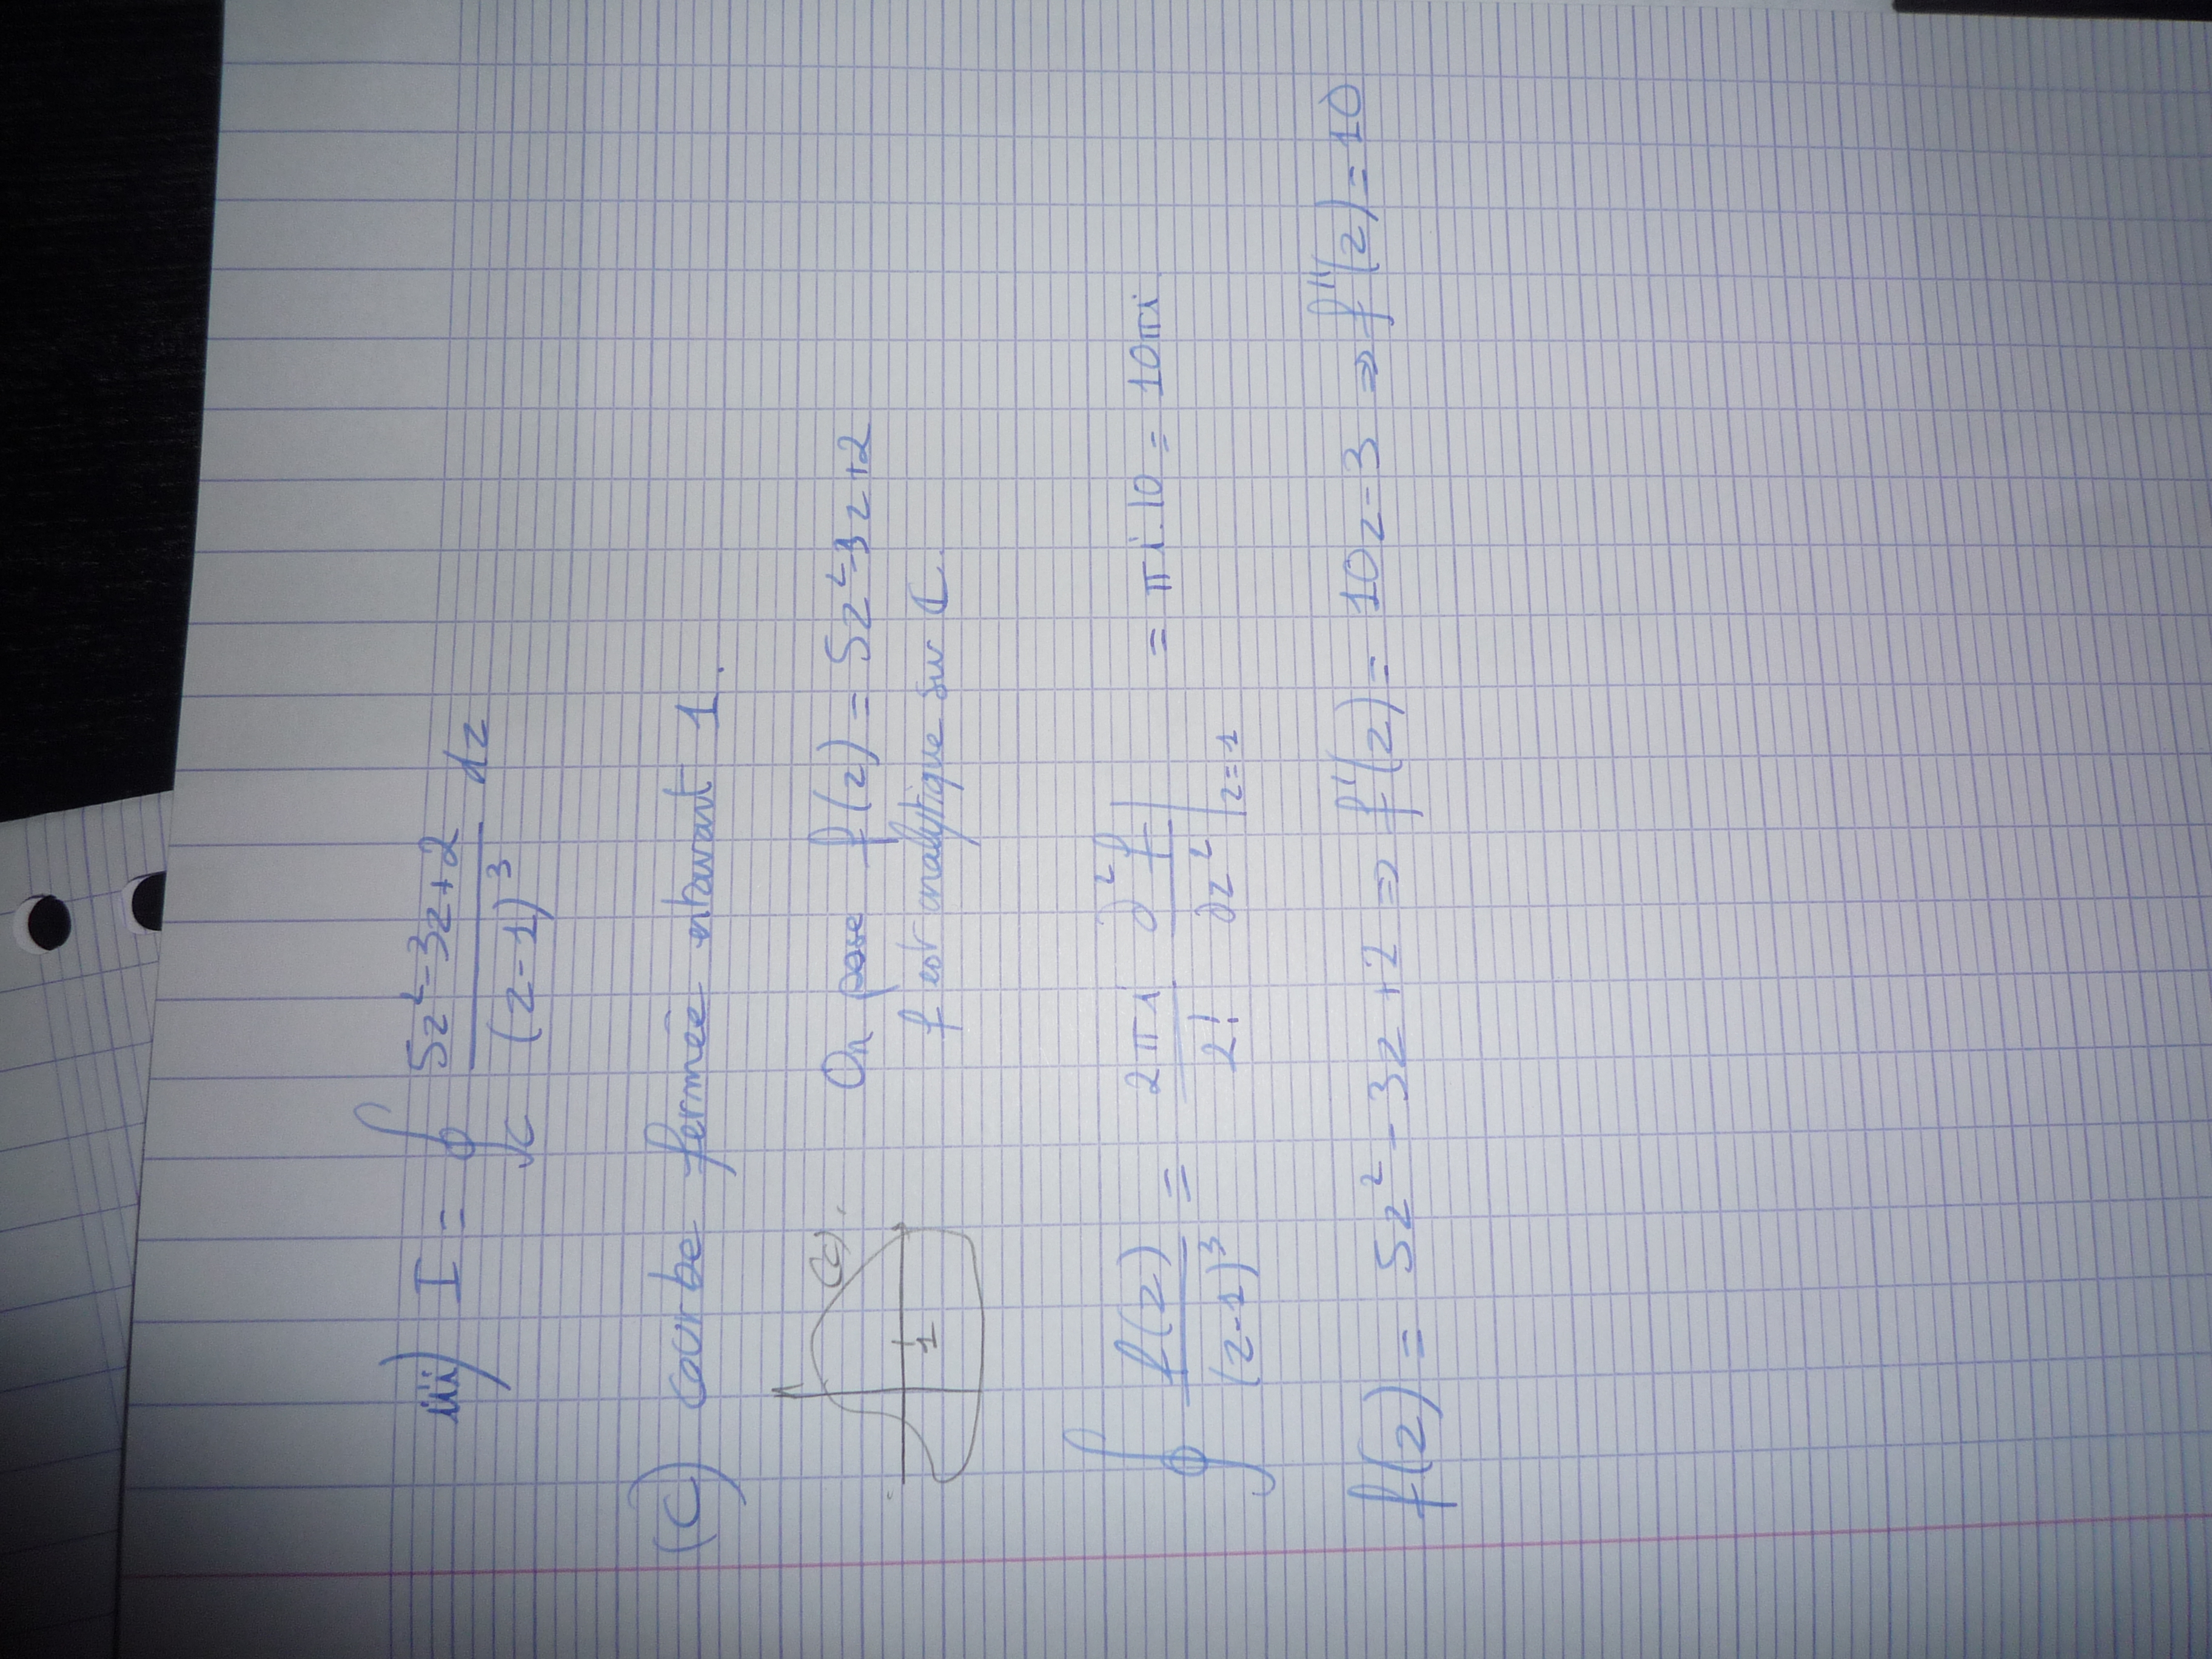 iii) I = ∮_C (5z²-3z+2)/(z-1)³ dz
(C) courbe fermée entourant 1.
(C).
1
On pose f(z) = 5z²-3z+2
f est analytique sur ℂ.
∮ f(z)/(z-1)³ = 2πi/2! ∂²f/∂z² |z=1 = πi.10 = 10πi
f(z) = 5z² - 3z + 2 ⇒ f'(z) = 10z - 3 ⇒ f''(z) = 10